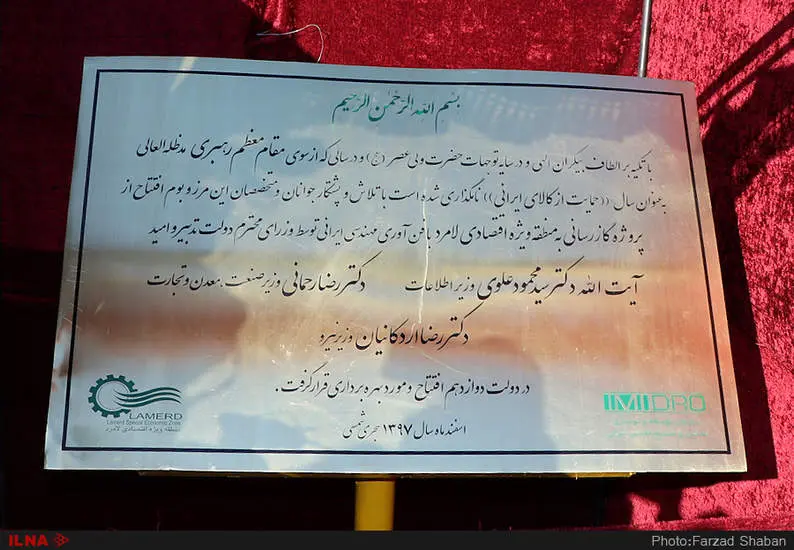 بسم الله الرحمن الرحیم
با تکیه بر الطاف بیکران الهی و در سایه توجهات حضرت ولی عصر (عج) و در سالی که از سوی مقام معظم رهبری مدظله العالی
به عنوان سال ((حمایت از کالای ایرانی)) نامگذاری شده است با تلاش و پشتکار جوانان و متخصصان این مرز و بوم افتتاح از
پروژه گازرسانی به منطقه ویژه اقتصادی لامرد با فن آوری مهندسی ایرانی توسط وزرای محترم دولت تدبیر و امید
آیت الله دکتر سید محمود علوی وزیر اطلاعات دکتر رضا رحمانی وزیر صنعت، معدن و تجارت
دکتر رضا اردکانیان وزیر نیرو
در دولت دوازدهم افتتاح و مورد بهره برداری قرار گرفت.
اسفند ماه سال ۱۳۹۷ هجری شمسی
LAMERD
Lamerd Special Economic Zone
منطقه ویژه اقتصادی لامرد
IMIDRO
ILNA
Photo:Farzad Shaban